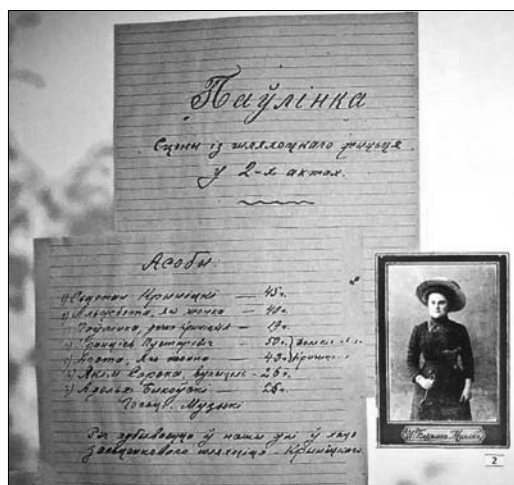 Паўлінка
Сцэны із шляхоцкаго жыцьця
у 2-х актах.
Асобы:
1) Сцепан Крыніцкі — 45 г.
2) Альжбета, яго жонка — 40 г.
3) Паўлінка, дачка — 19 г.
4) Пустарэвіч — 50 г.
5) Агата, яго жонка — 43 г.
6) Якім Сарока, вучыцель — 26 г.
7) Адольф Быкоўскі — 25 г.
Госьці. Музыкі
Рэч адбываецца ў нашы дні ў хаце
шляхціца – Крыніцкого.
2